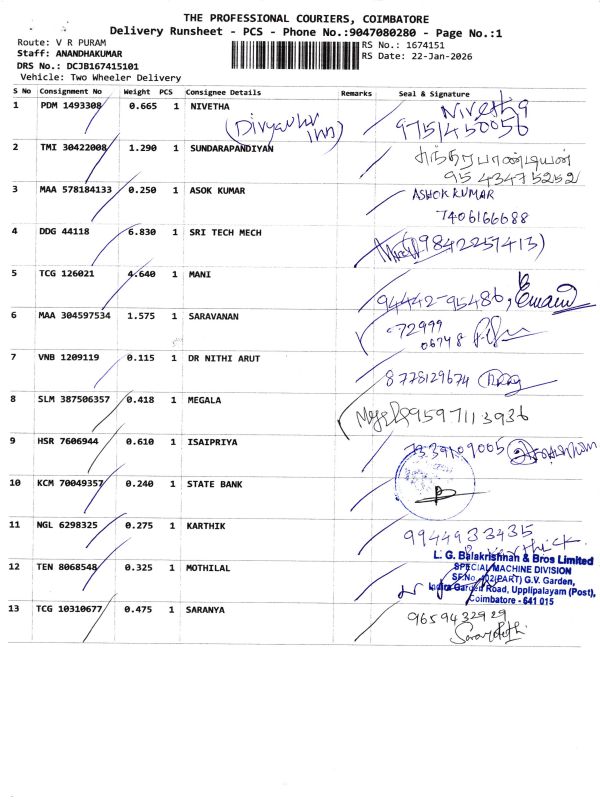 THE PROFESSIONAL COURIERS, COIMBATORE
Delivery Runsheet - PCS - Phone No.:9047080280 - Page No.:1
Route: V R PURAM
Staff: ANANDHAKUMAR
DRS No.: DCJB167415101
Vehicle: Two Wheeler Delivery
RS No.: 1674151
RS Date: 22-Jan-2026
S No Consignment No Weight PCS Consignee Details Remarks Seal & Signature
1 PDM 1493308 0.665 1 NIVETHA Nivetha
(Divyankur Inn) 9751450056
2 TMI 30422008 1.290 1 SUNDARAPANDIYAN சுந்தரபாண்டியன்
9543475252
3 MAA 578184133 0.250 1 ASOK KUMAR ASHOK KUMAR
7406166688
4 DDG 44118 6.830 1 SRI TECH MECH (9842257413)
5 TCG 126021 4.640 1 MANI 94442-95486,
6 MAA 304597534 1.575 1 SARAVANAN 72999
06748
7 VNB 1209119 0.115 1 DR NITHI ARUT 8778129674
8 SLM 387506357 0.418 1 MEGALA 9597113936
9 HSR 7606944 0.610 1 ISAIPRIYA 7339109005
10 KCM 70049357 0.240 1 STATE BANK
11 NGL 6298325 0.275 1 KARTHIK 9944933435
Karthick.
12 TEN 8068548 0.325 1 MOTHILAL L. G. Balakrishnan & Bros Limited
SPECIAL MACHINE DIVISION
SF.No. 102(PART) G.V. Garden,
Indira Garden Road, Upplipalayam (Post),
Coimbatore - 641 015
13 TCG 10310677 0.475 1 SARANYA 9659432929